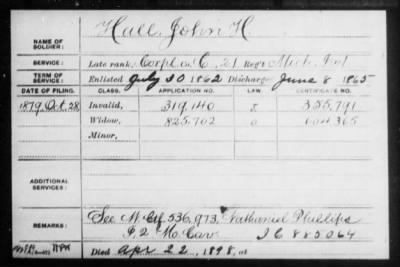 Hall, John H.
NAME OF SOLDIER:
SERVICE: Late rank, Corpl Co. C, 21 Reg't Mich. Inf
TERM OF SERVICE: Enlisted July 30 1862 Discharged June 8 1865
DATE OF FILING. CLASS. APPLICATION NO. LAW. CERTIFICATE NO.
1879, Oct. 28 Invalid, 319,140 355,791
Widow, 825,702
Minor,
ADDITIONAL SERVICES:
REMARKS: See W Ctf 536,973, Nathaniel Phillips
F. 2 Mo. Cav. I C 885064
Died Apr 22, 1898, at